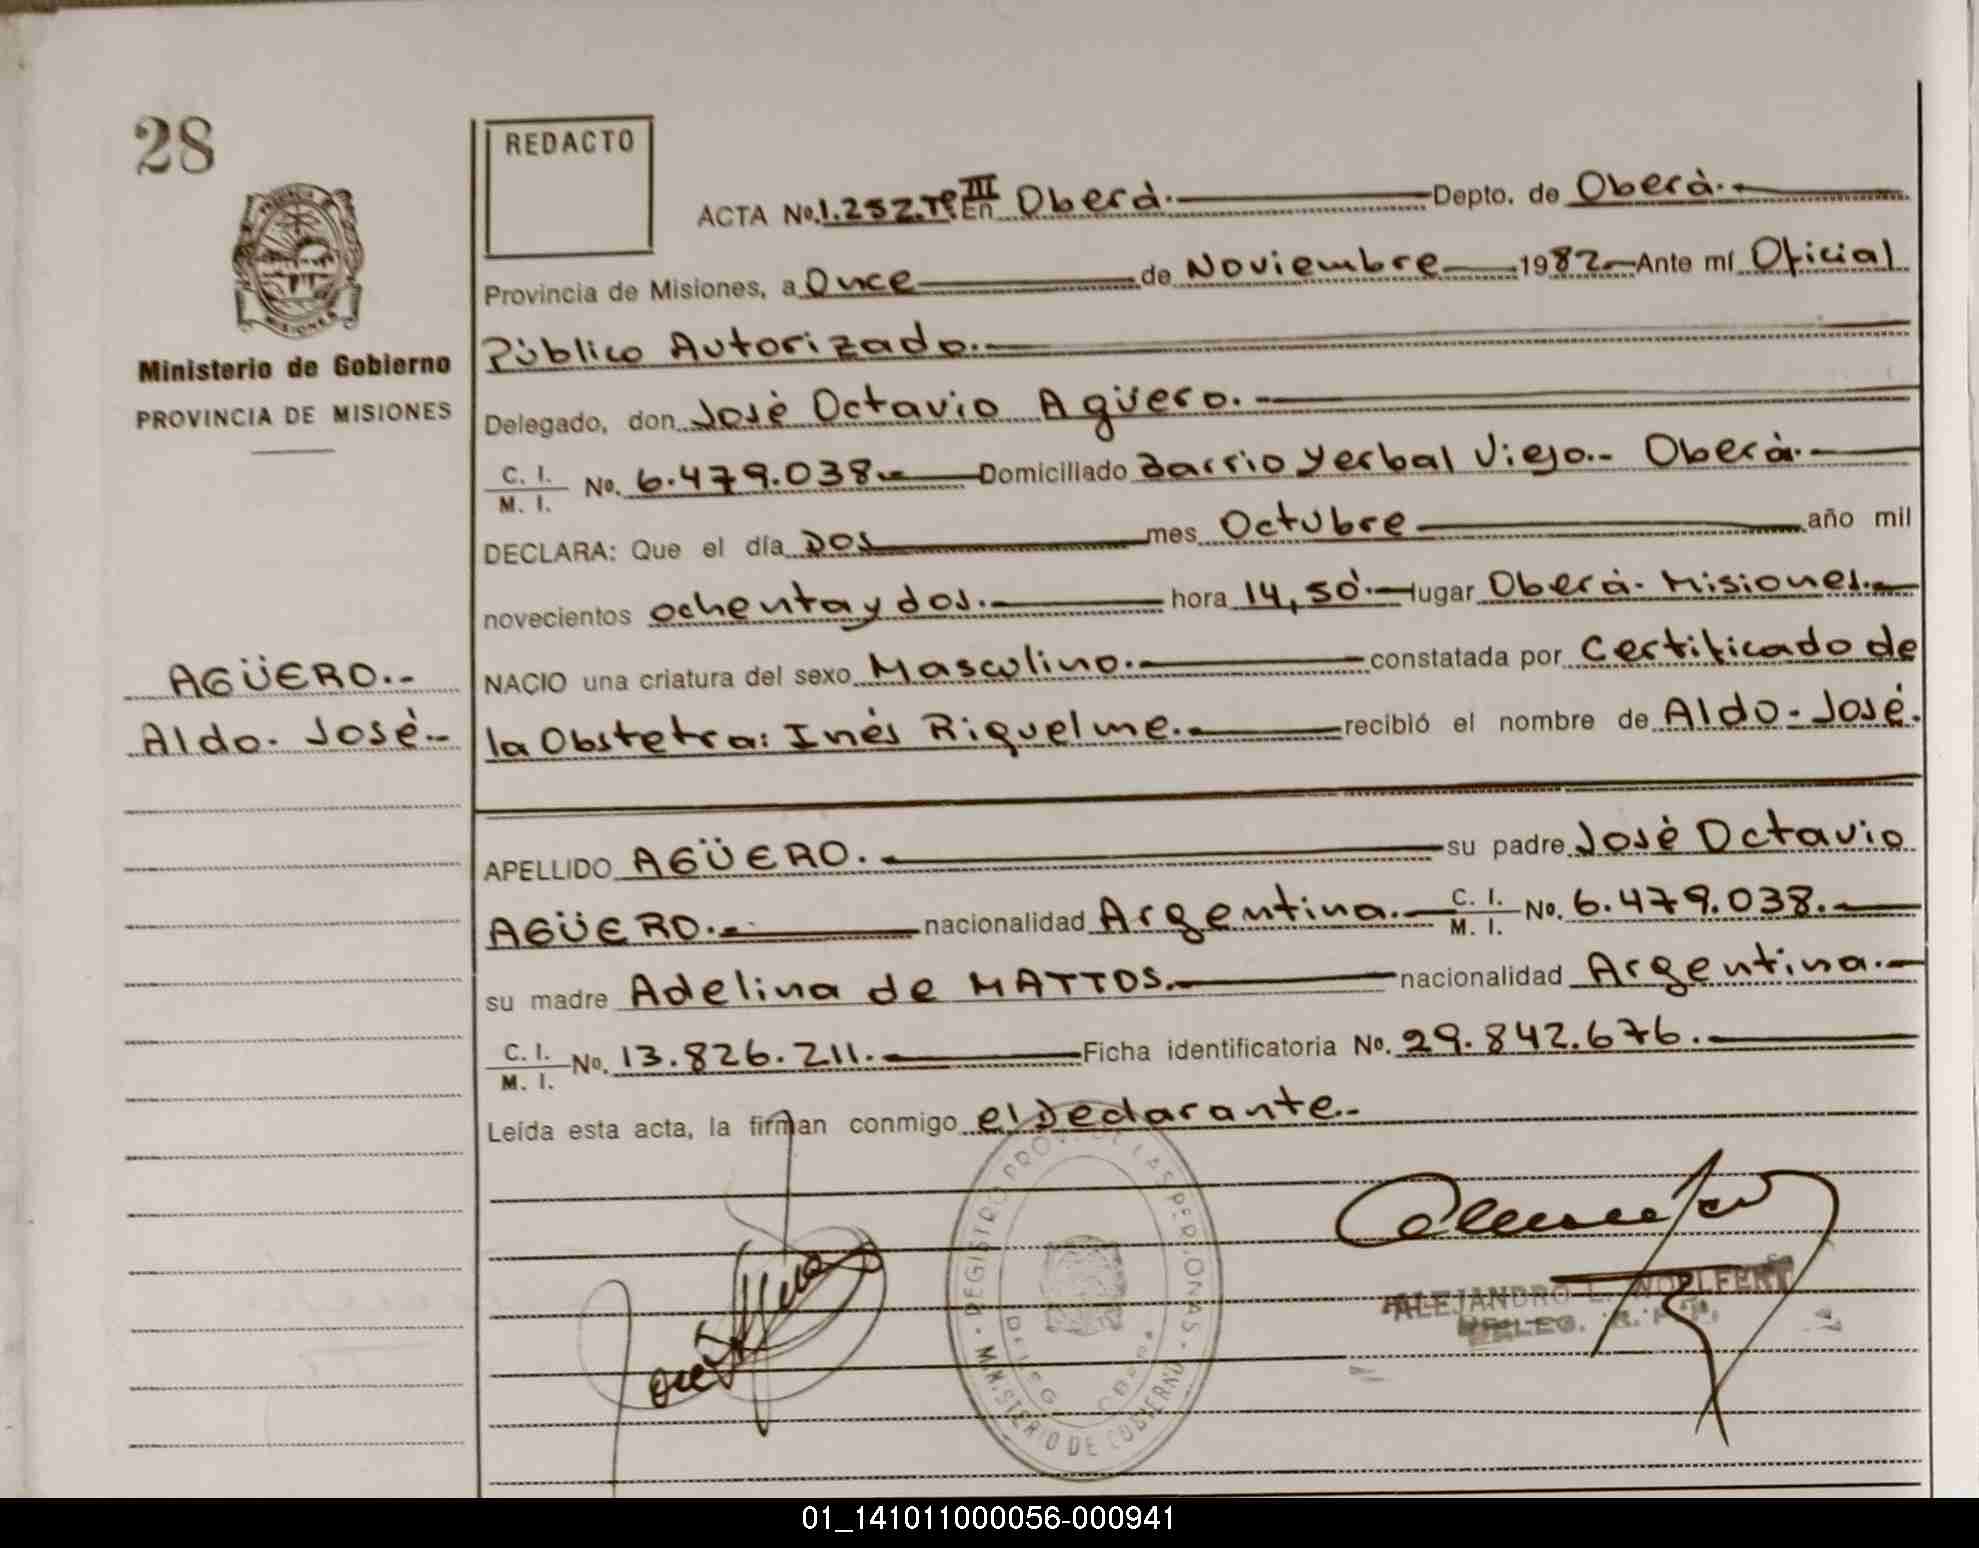 28
REDACTO
ACTA No. 1.252.Tº III En Oberà. Depto. de Oberà.
Provincia de Misiones, a Once de Noviembre 1982 Ante mí Oficial
Ministerio de Gobierno
PROVINCIA DE MISIONES
Público Autorizado.
Delegado, don José Octavio Agüero.
C. I. / M. I. No. 6.479.038 Domiciliado Barrio Yerbal Viejo.- Oberà.
DECLARA: Que el día Dos mes Octubre año mil
novecientos ochenta y dos. hora 14,50'. lugar Oberà. Misiones.
AGÜERO.-
Aldo. José.-
NACIO una criatura del sexo Masculino. constatada por Certificado de
la Obstetra: Inés Riquelme. recibió el nombre de Aldo. José.
APELLIDO AGÜERO. su padre José Octavio
AGÜERO. nacionalidad Argentina. C. I. / M. I. No. 6.479.038.
su madre Adelina de MATTOS. nacionalidad Argentina.
C. I. / M. I. No. 13.826.211. Ficha identificatoria No. 29.842.676.
Leída esta acta, la firman conmigo el Declarante.
REGISTRO PROV. DE LAS PERSONAS
MINISTERIO DE GOBIERNO
ALEJANDRO L.
DELEG. R.P.P.
01_141011000056-000941